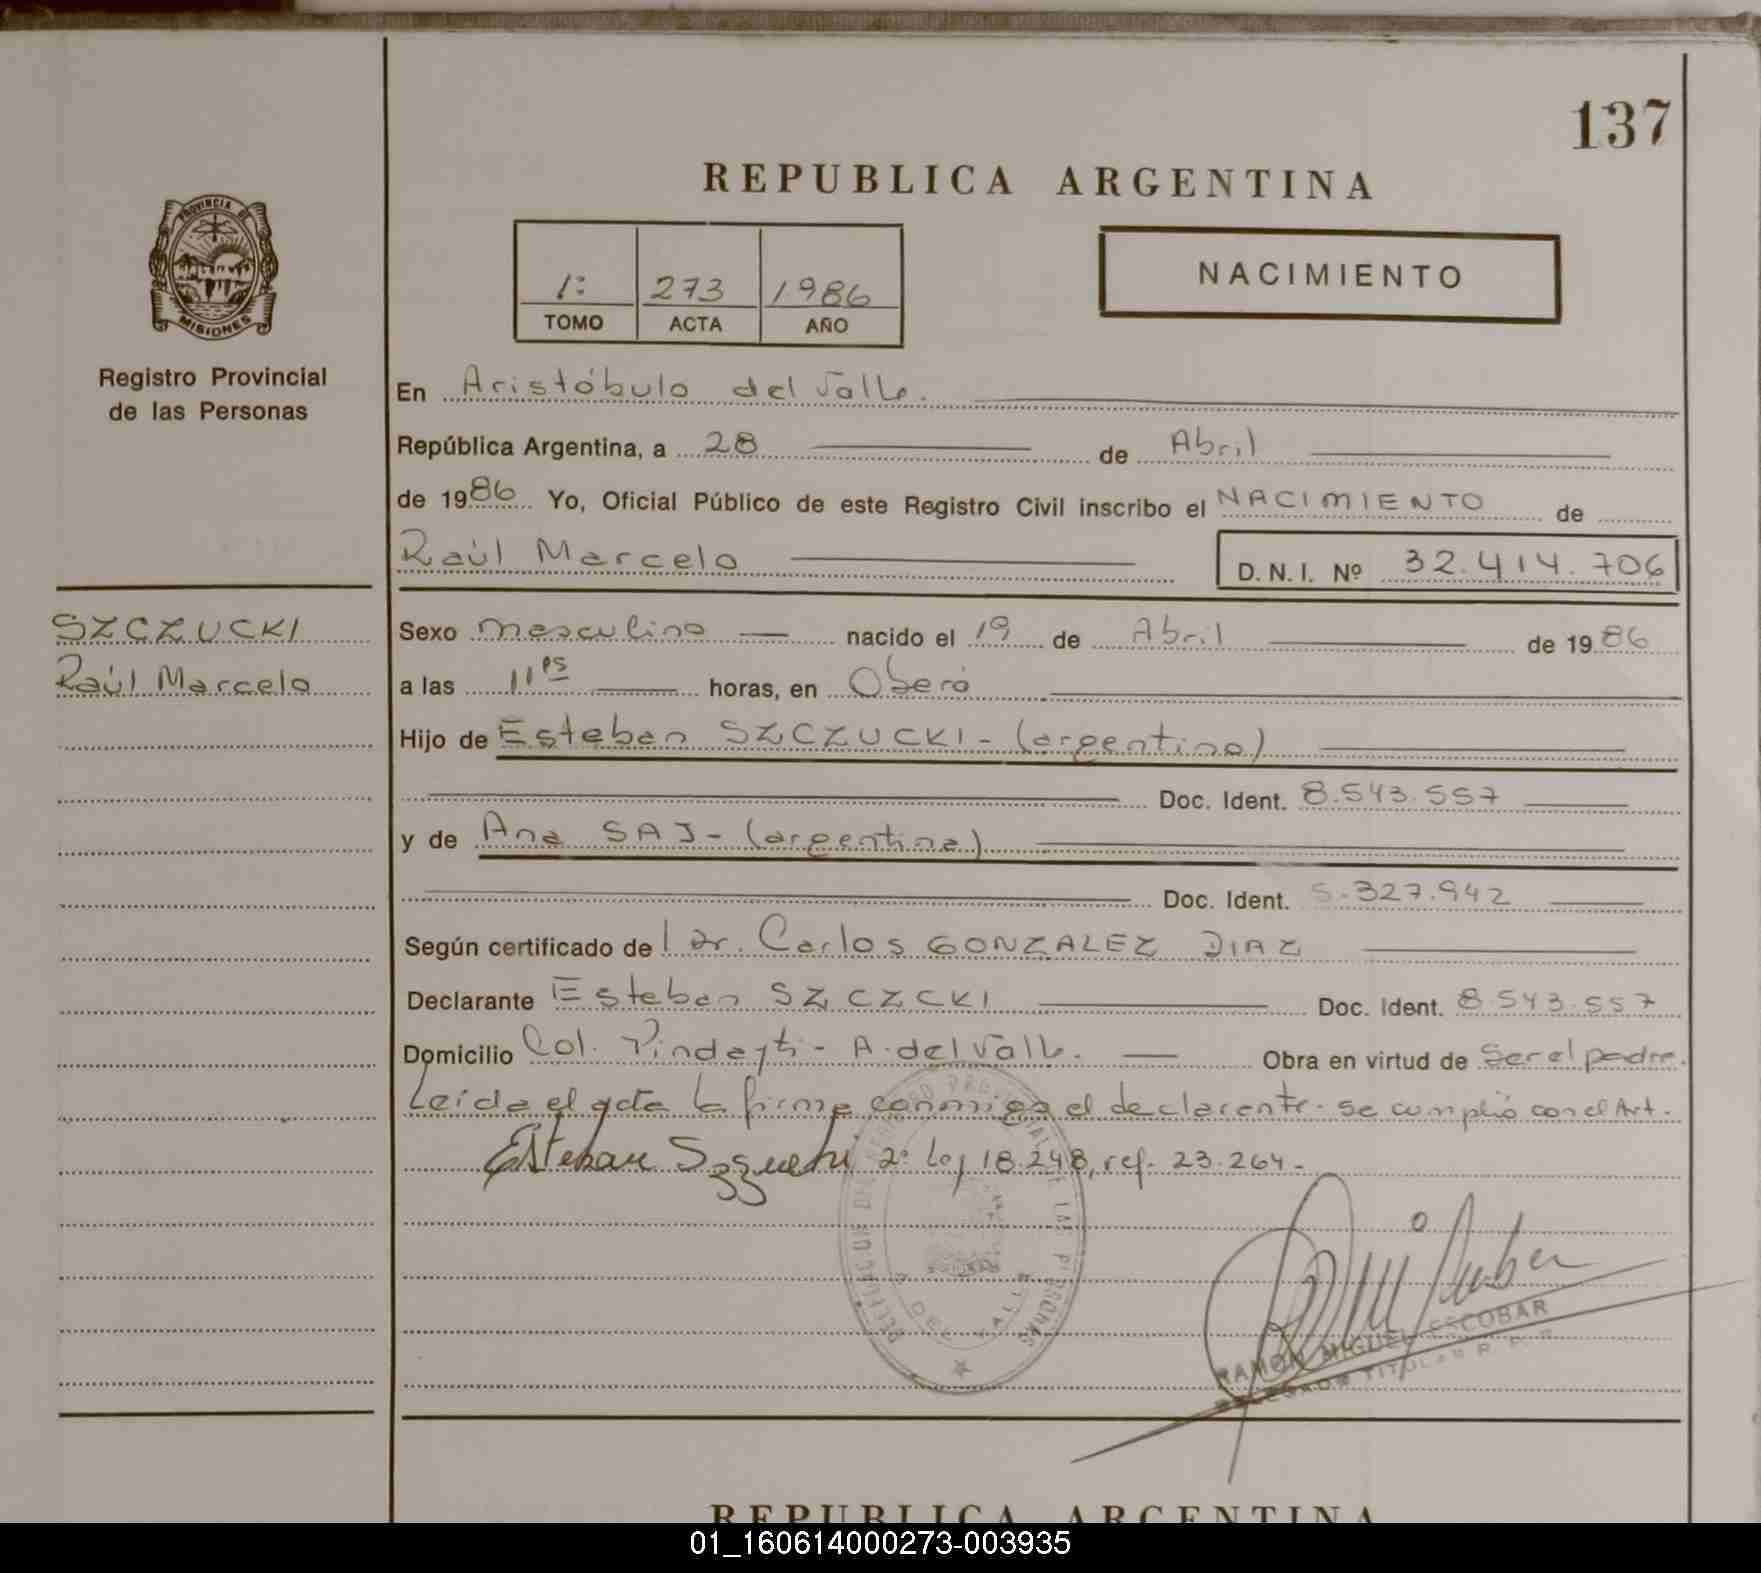 137
REPUBLICA ARGENTINA
PROVINCIA DE
MISIONES
Registro Provincial
de las Personas
1: 273 1986
TOMO ACTA AÑO
NACIMIENTO
En Aristóbulo del Valle.
República Argentina, a 28 de Abril
de 1986 Yo, Oficial Público de este Registro Civil inscribo el NACIMIENTO de
Raúl Marcelo D. N. I. Nº 32.414.706
SZCZUCKI
Raúl Marcelo
Sexo masculino nacido el 19 de Abril de 1986
a las 11 ps horas, en Oberá
Hijo de Esteban SZCZUCKI - (argentino)
Doc. Ident. 8.543.557
y de Ana SAJ - (argentina)
Doc. Ident. 5.327.942
Según certificado de Dr. Carlos GONZALEZ DIAZ
Declarante Esteban SZCZCKI Doc. Ident. 8.543.557
Domicilio Col. Pindayti - A. del Valle. Obra en virtud de Ser el padre.
Leída el acta la firma conmigo el declarante. se cumplió con el Art.
Esteban 2º Ley 18.248, ref. 23.264 -
DEL VALLE
RAMON MIGUEL ESCOBAR
DELEGADO TITULAR R. P. P.
REPUBLICA ARGENTINA
01_160614000273-003935